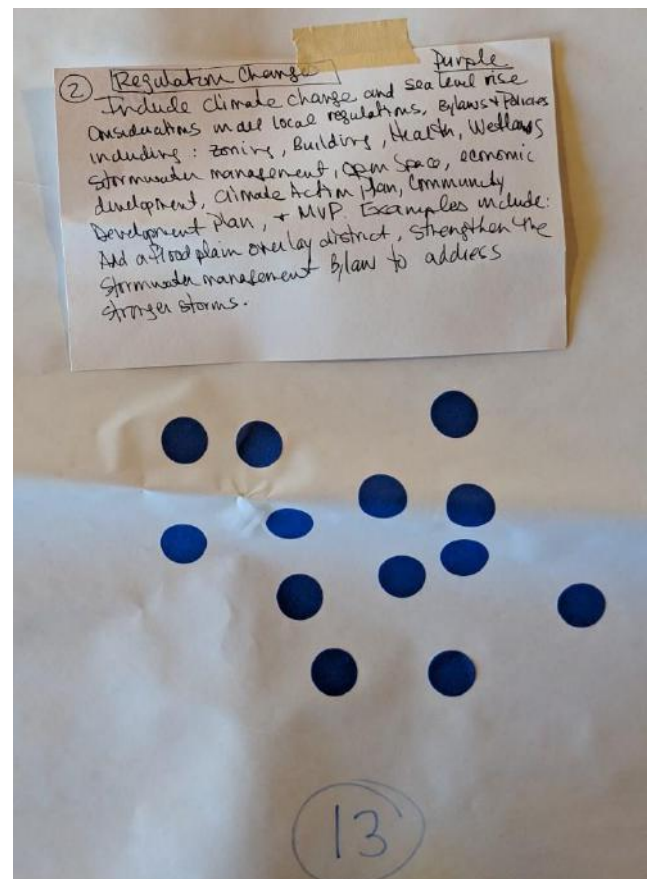 ② Regulation Change Purple
Include Climate change and sea level rise
Considerations in all local regulations, Bylaws + Policies
including: zoning, Building, Health, Wetlands
Stormwater management, Open Space, economic
development, Climate Action Plan, Community
Development Plan, + MVP. Examples include:
Add a floodplain overlay district, strengthen the
Stormwater management Bylaw to address
stronger storms.
13